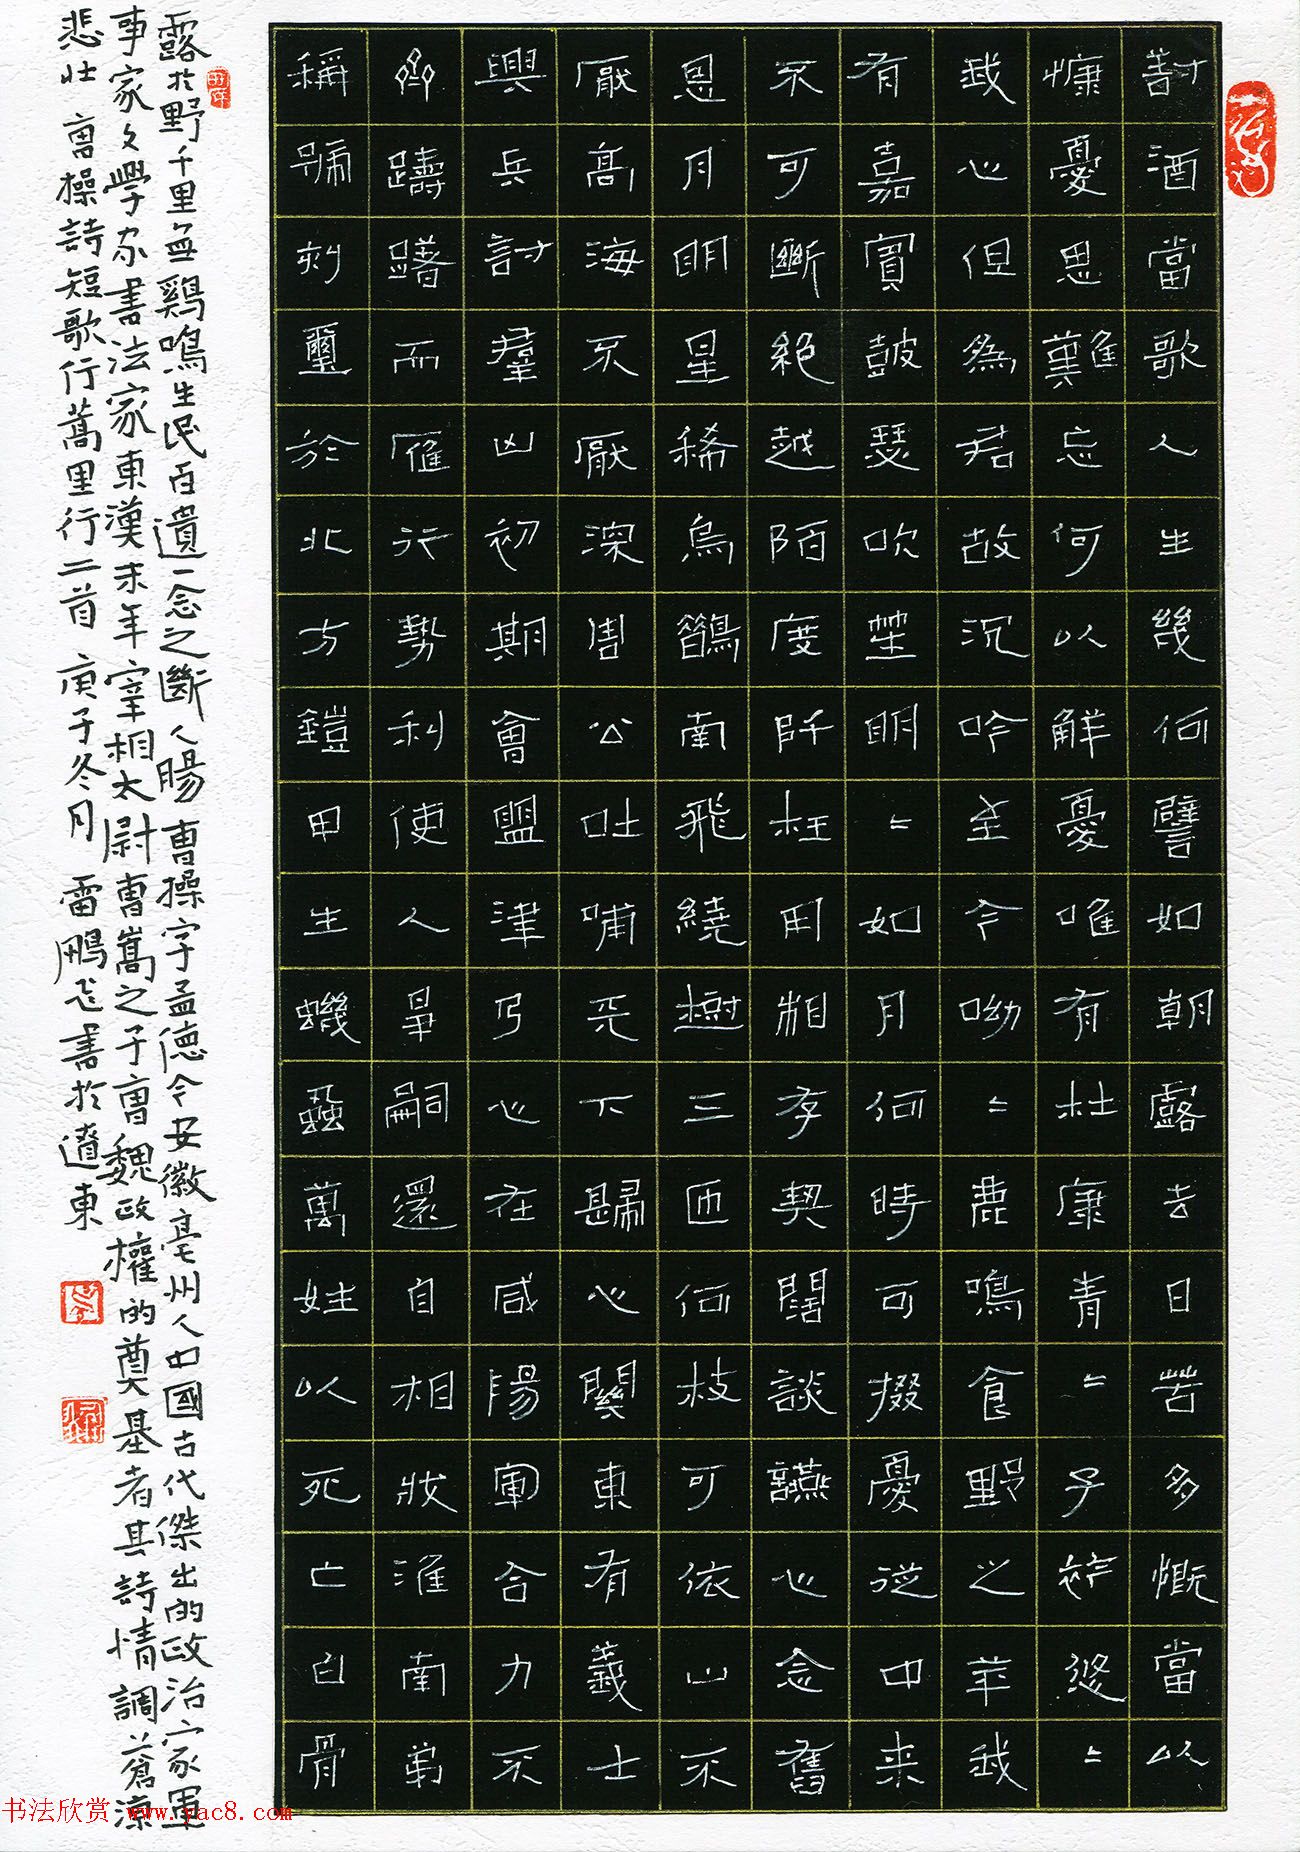 對酒當歌人生幾何譬如朝露去日苦多慨當以
慷憂思難忘何以解憂唯有杜康青〻子衿悠〻
我心但為君故沉吟至今呦〻鹿鳴食野之苹我
有嘉賓鼓瑟吹笙明〻如月何時可掇憂從中来
不可斷絕越陌度阡枉用相存契闊談讌心念舊
恩月明星稀烏鵲南飛繞樹三匝何枝可依山不
厭高海不厭深周公吐哺天下歸心關東有義士
興兵討羣凶初期會盟津乃心在咸陽軍合力不
齊躊躇而雁行勢利使人爭嗣還自相戕淮南弟
稱號刻璽於北方鎧甲生蟣蝨萬姓以死亡白骨
露於野千里無鷄鳴生民百遺一念之斷人腸曹操字孟德今安徽亳州人中國古代傑出的政治家軍
事家文學家書法家東漢末年宰相太尉曹嵩之子曹魏政權的奠基者其詩情調蒼涼
悲壯 曹操詩短歌行蒿里行二首 庚子冬月 雷鵬飞書於遼東
书法欣赏 www.yac8.com